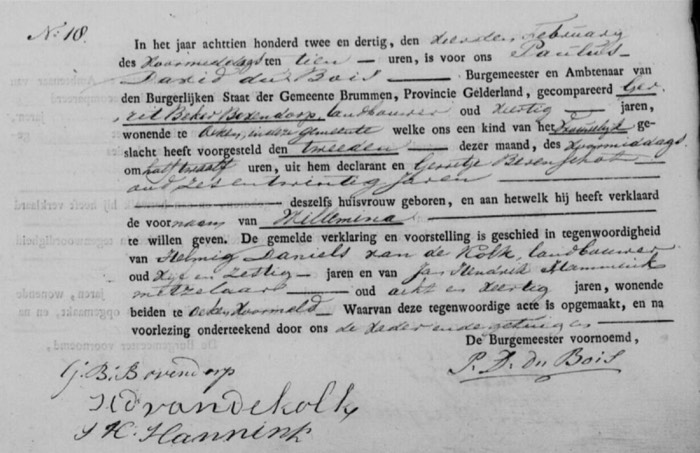 No. 18.
In het jaar achttien honderd twee en dertig, den vierden February
des voormiddags ten tien uren, is voor ons Paulus
David du Bois Burgemeester en Ambtenaar van
den Burgerlijken Staat der Gemeente Brummen, Provincie Gelderland, gecompareerd Ger-
rit landbouwer oud veertig jaren,
wonende te Oeken, in deze gemeente welke ons een kind van het vrouwelijk ge-
slacht heeft voorgesteld den tweeden dezer maand, des voormiddags
om half twaalf uren, uit hem declarant en Gerritje Berenschot
oud zes en twintig jaren
deszelfs huisvrouw geboren, en aan hetwelk hij heeft verklaard
de voornaam van Willemina
te willen geven. De gemelde verklaring en voorstelling is geschied in tegenwoordigheid
van Helmig Daniels van de Kolk, landbouwer
oud vijf en zestig jaren en van Jan Hendrik
metzelaar oud acht en veertig jaren, wonende
beiden te Oeken voormeld. Waarvan deze tegenwoordige acte is opgemaakt, en na
voorlezing onderteekend door ons de vader en de getuigen
De Burgemeester voornoemd,
P. D. du Bois
G. B. Bovendorp
H D van de kolk
J H. Hannink